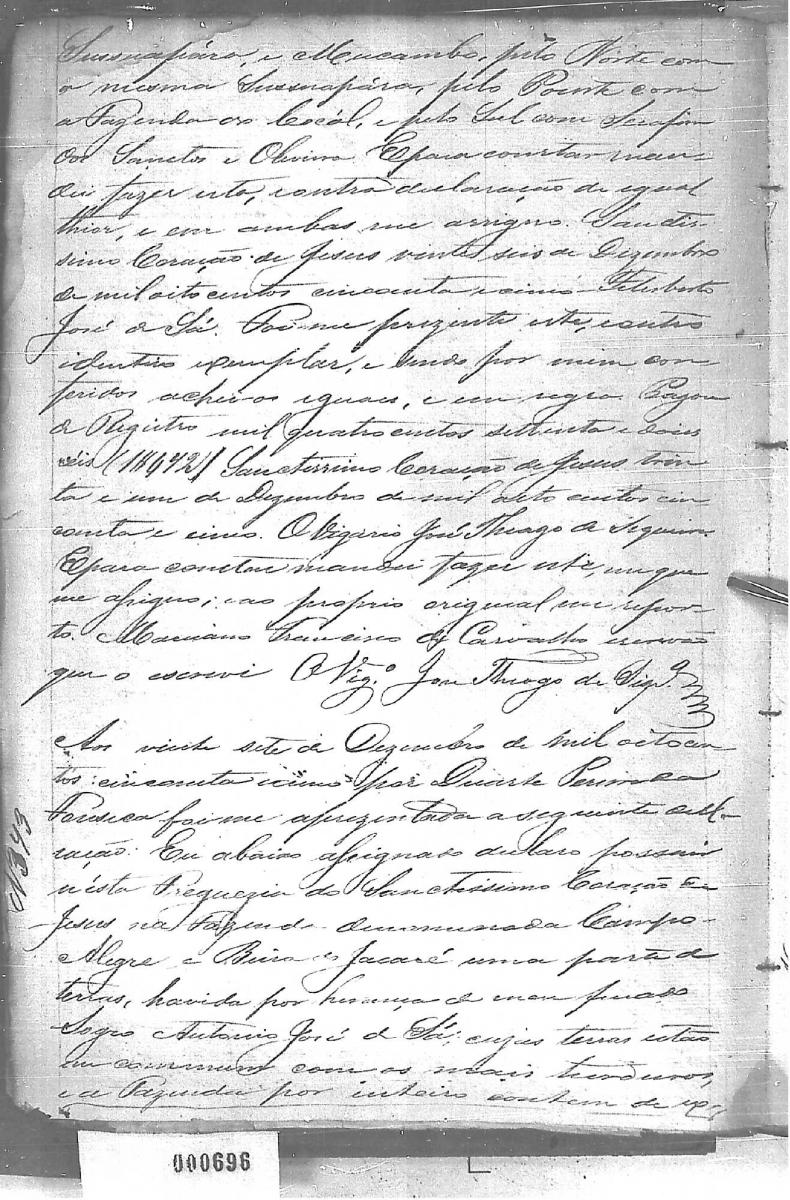 Sussuapára, e Mucambo, pelo Norte com
a mesma Sussuapára, pelo Poente com
a Fazenda do Cocál, e pelo Sul com Serafim
dos Sanctos e Oliveira. E para constar man-
dei fazer esta, e outra declaração de igual
thior, e em ambas me assigno. Sanctis-
simo Coração de Jesus vinte seis de Dezembro
de mil oito centos cincoenta e cinco. Felisberto
José de Sá. Foi me prezente este, e outro
identico exemplár, e sendo por mim con-
feridos achei-os iguaes, e em regra. Pagou
de Registro mil quatro centos settenta e dous
reis (1$472) Sanctissimo Coração de Jesus trin-
ta e um de Dezembro de mil oito centos cin-
coenta e cinco. O Vigario José Thiago de Siqueira.
E para constar mandei fazer este, em que
me assigno; e ao proprio original me repor-
to. Marciano Francisco de Carvalho escrivão
que o escrevi O Vig.º José Thiago de Siqr.ª
Aos vinte sete de Dezembro de mil oito cen-
tos cincoenta e cinco por Duarte Pereira da
Fonseca foi me aprezentada a seguinte decla-
ração: Eu abaixo assignado declaro possuir
nésta Freguezia do Sanctissimo Coração de
Jesus na Fazenda denominada Campo-
Alegre e Beira de Jacaré uma parte de
terras, havida por herança de meu finado
Sogro Antonio José de Sá; cujas terras estão
em commum com os mais herdeiros,
e a Fazenda por inteiro contem de ex
N 349
000696